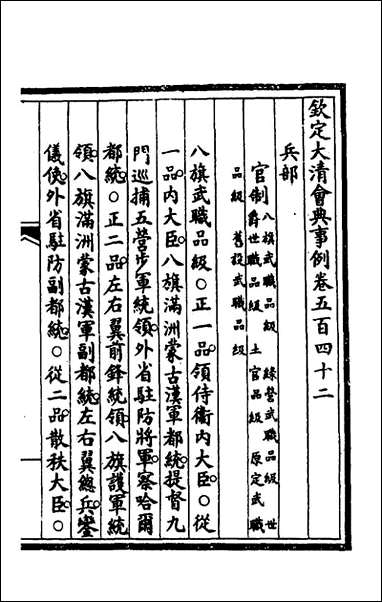 欽定大清會典事例卷五百四十二
兵部
官制八旗武職品級　綠營武職品級　世
爵世職品級　土官品級　原定武職
品級　舊設武職品級
八旗武職品級○正一品領侍衛內大臣○從
一品內大臣八旗滿洲蒙古漢軍都統提督九
門巡捕五營步軍統領外省駐防將軍察哈爾
都統○正二品左右翼前鋒統領八旗護軍統
領八旗滿洲蒙古漢軍副都統左右翼總兵鑾
儀使外省駐防副都統○從二品散秩大臣○